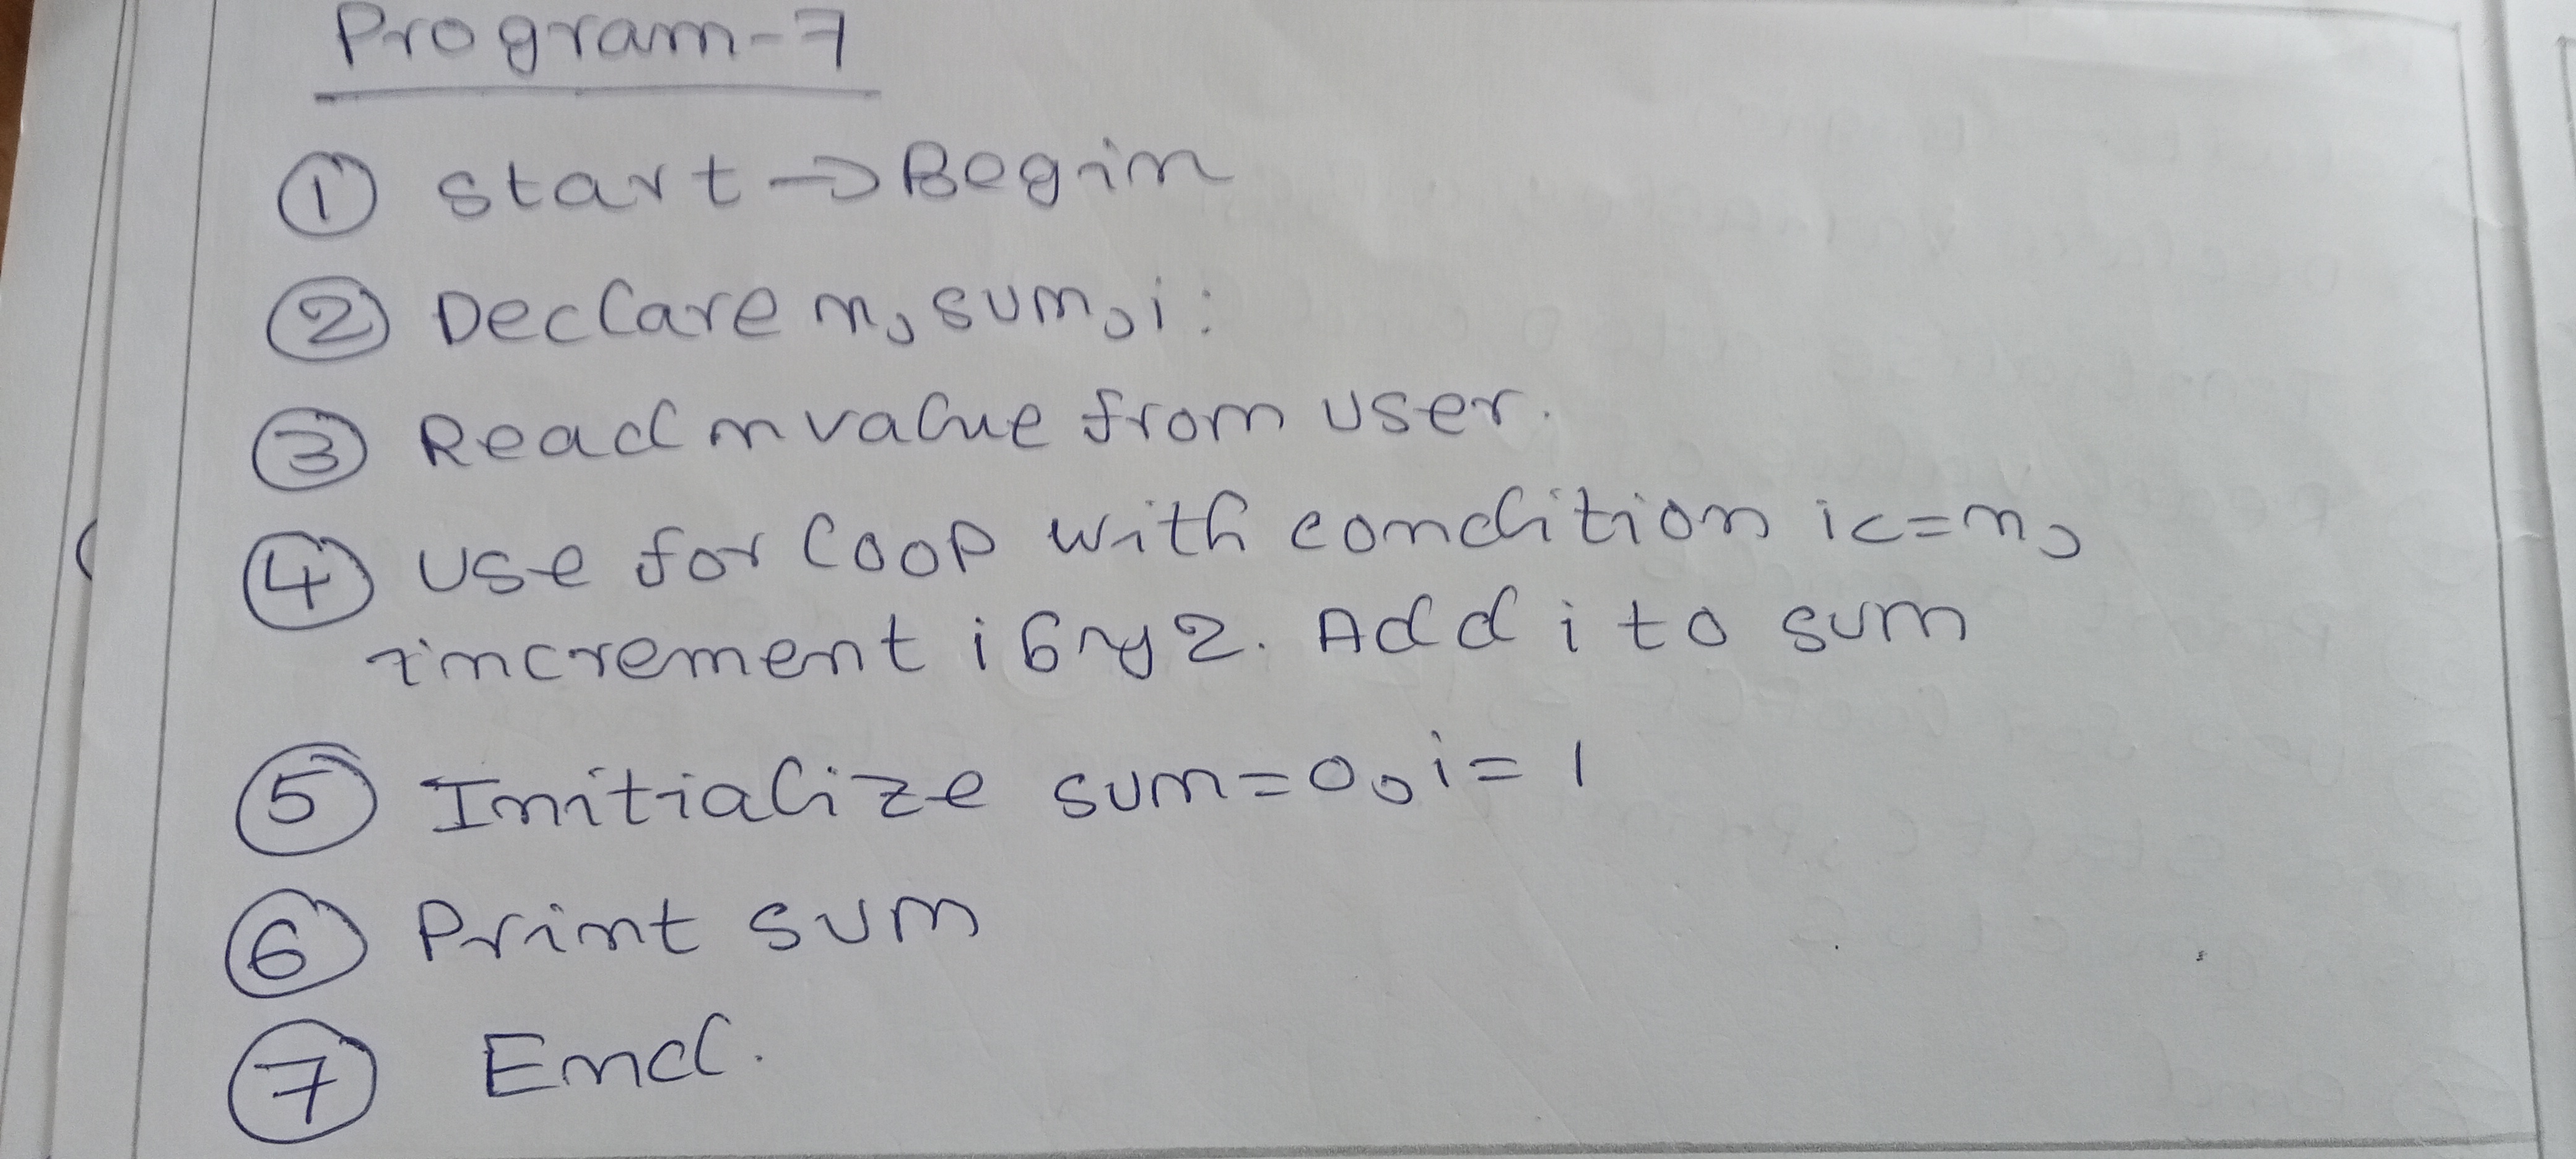 Program-7
① Start → Begin
② Declare n, sum, i:
③ Read n value from user.
④ Use for loop with condition i<=n,
increment i by 2. Add i to sum
⑤ Initialize sum=0, i=1
⑥ Print sum
⑦ End.